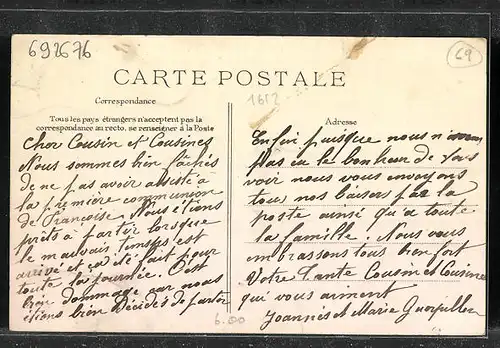 692676
69
CARTE POSTALE
1612
Correspondance
Tous les pays étrangers n'acceptent pas la
correspondance au recto, se renseigner à la Poste
Adresse
Cher Cousin et Cousines
Nous sommes bien fâchés
de ne pas avoir assisté à
la première communion
de Françoise. Nous étions
prêts à partir lorsque
le mauvais temps est
arrivé et a été fait pour
toute la journée. C'est
bien dommage car nous
étions bien décidés de partir
Enfin puisque nous n'avons
pas eu le bonheur de vous
voir nous vous envoyons
tous nos baiser par la
poste ainsi qu'a toute
la famille. Nous vous
embrassons tous bien fort
Votre Tante Cousin et Cousine
qui vous aiment
Joannès et Marie
6.00